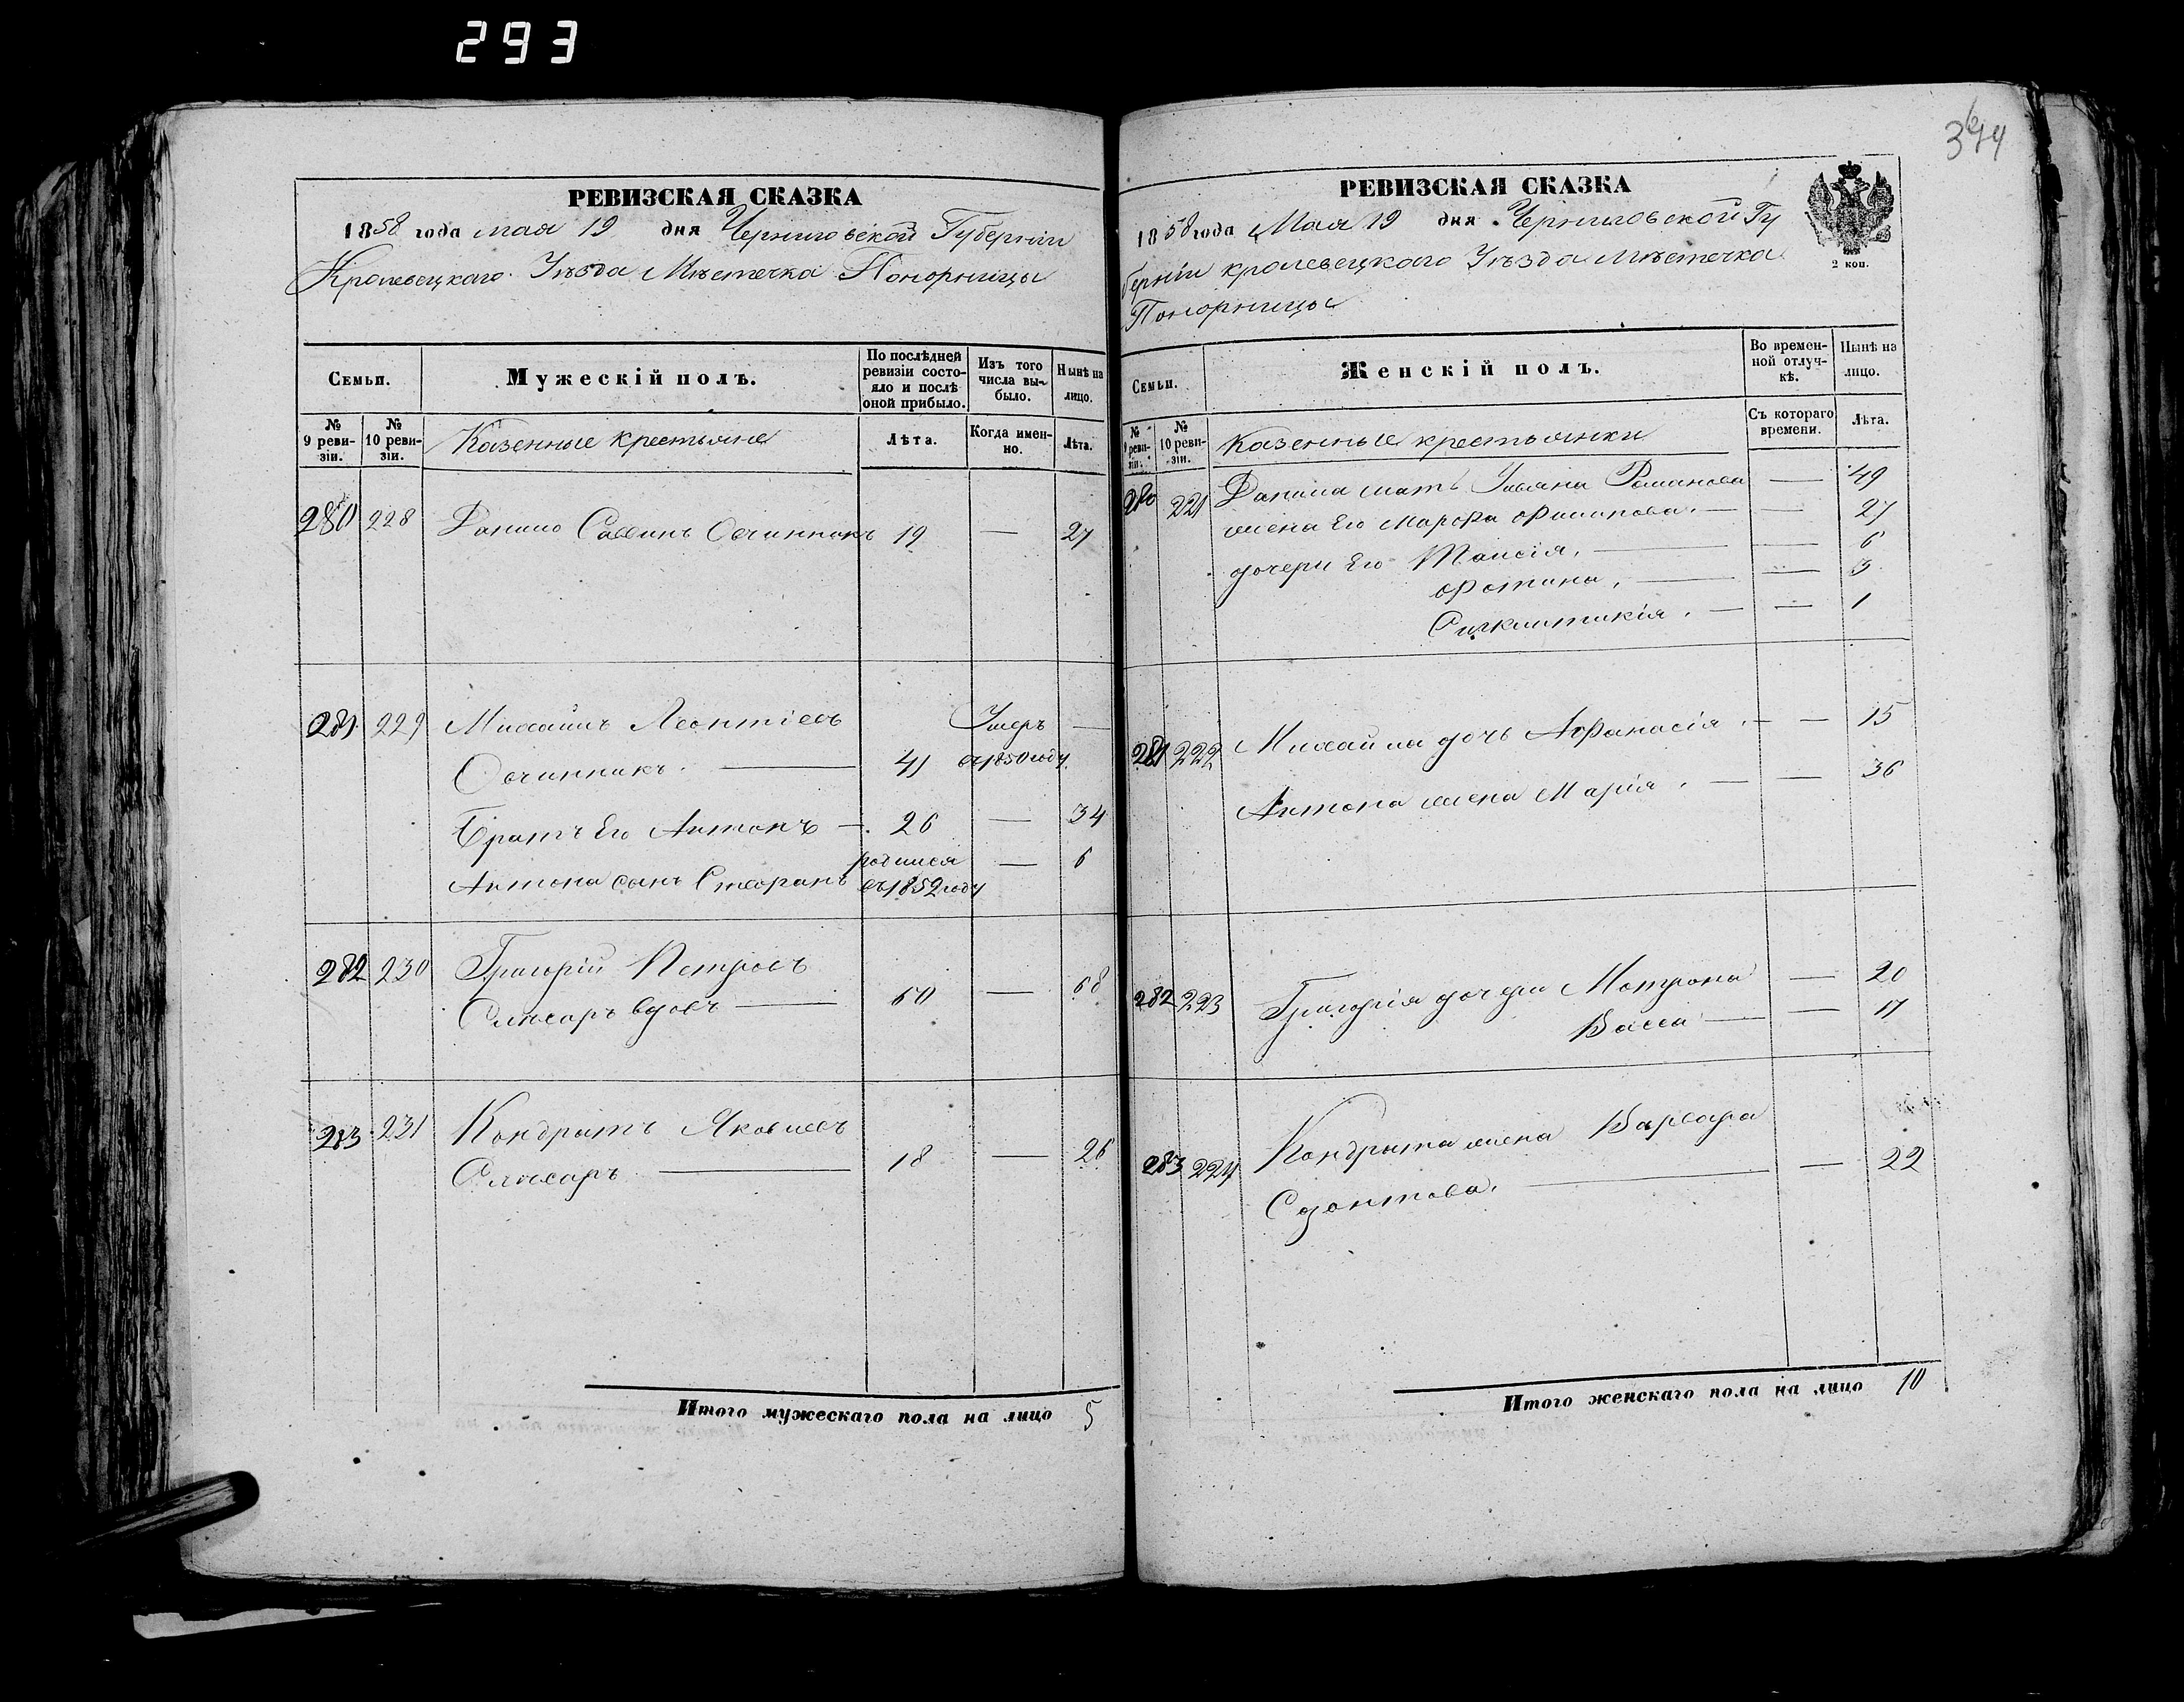 293
РЕВИЗСКАЯ СКАЗКА
1858 года мая 19 дня Черниговской Губерніи
Кролевецкаго Уѣзда Мѣстечка Понорницы
Семьи.
Мужескій полъ.
По послѣдней ревизіи состояло и послѣ оной прибыло.
Изъ того числа выбыло.
Нынѣ на лицо.
№ 9 ревизіи.
№ 10 ревизіи.
Казенные крестьяне
Лѣта.
Когда именно.
Лѣта.
280 228 Данило Саввинъ Овчинникъ 19 — 27
281 229 Михаилъ Леонтіевъ Умеръ —
Овчинникъ. — 41 въ 1850 году.
Братъ Его Антонъ —. 26 — 34
родился — 6
Антона сынъ Стефанъ въ 1852 году
282 230 Григорій Петровъ
Слѣсаръ вдовъ — 60 — 68
283 231 Кондратъ Яковлевъ
Слѣсаръ — 18 — 26
Итого мужескаго пола на лицо 5
РЕВИЗСКАЯ СКАЗКА
1858 года Мая 19 дня Черниговской Гу
берніи кролевецкаго Уѣзда Мѣстечка
Понорницы
2 коп.
Семьи.
Женскій полъ.
Во временной отлучкѣ.
Нынѣ на лицо.
№ 9 ревизіи.
№ 10 ревизіи.
Казенные крестьянки
Съ котораго времени.
Лѣта.
280 221 Данила мать Ульяна Романова — 49
жена Его Марфа Филипова. — — 27
дочери Его Таисія, — — 6
Фотина, — — 3
Сигклитикія. — — 1
281 222 Михайла дочь Афанасія. — — 15
Антона жена Марія. — — 36
282 223 Григорія дочери Мотрона — 20
Васса — — 17
283 224 Кондрата жена Варвара
Созонтова. — — 22
Итого женскаго пола на лицо 10